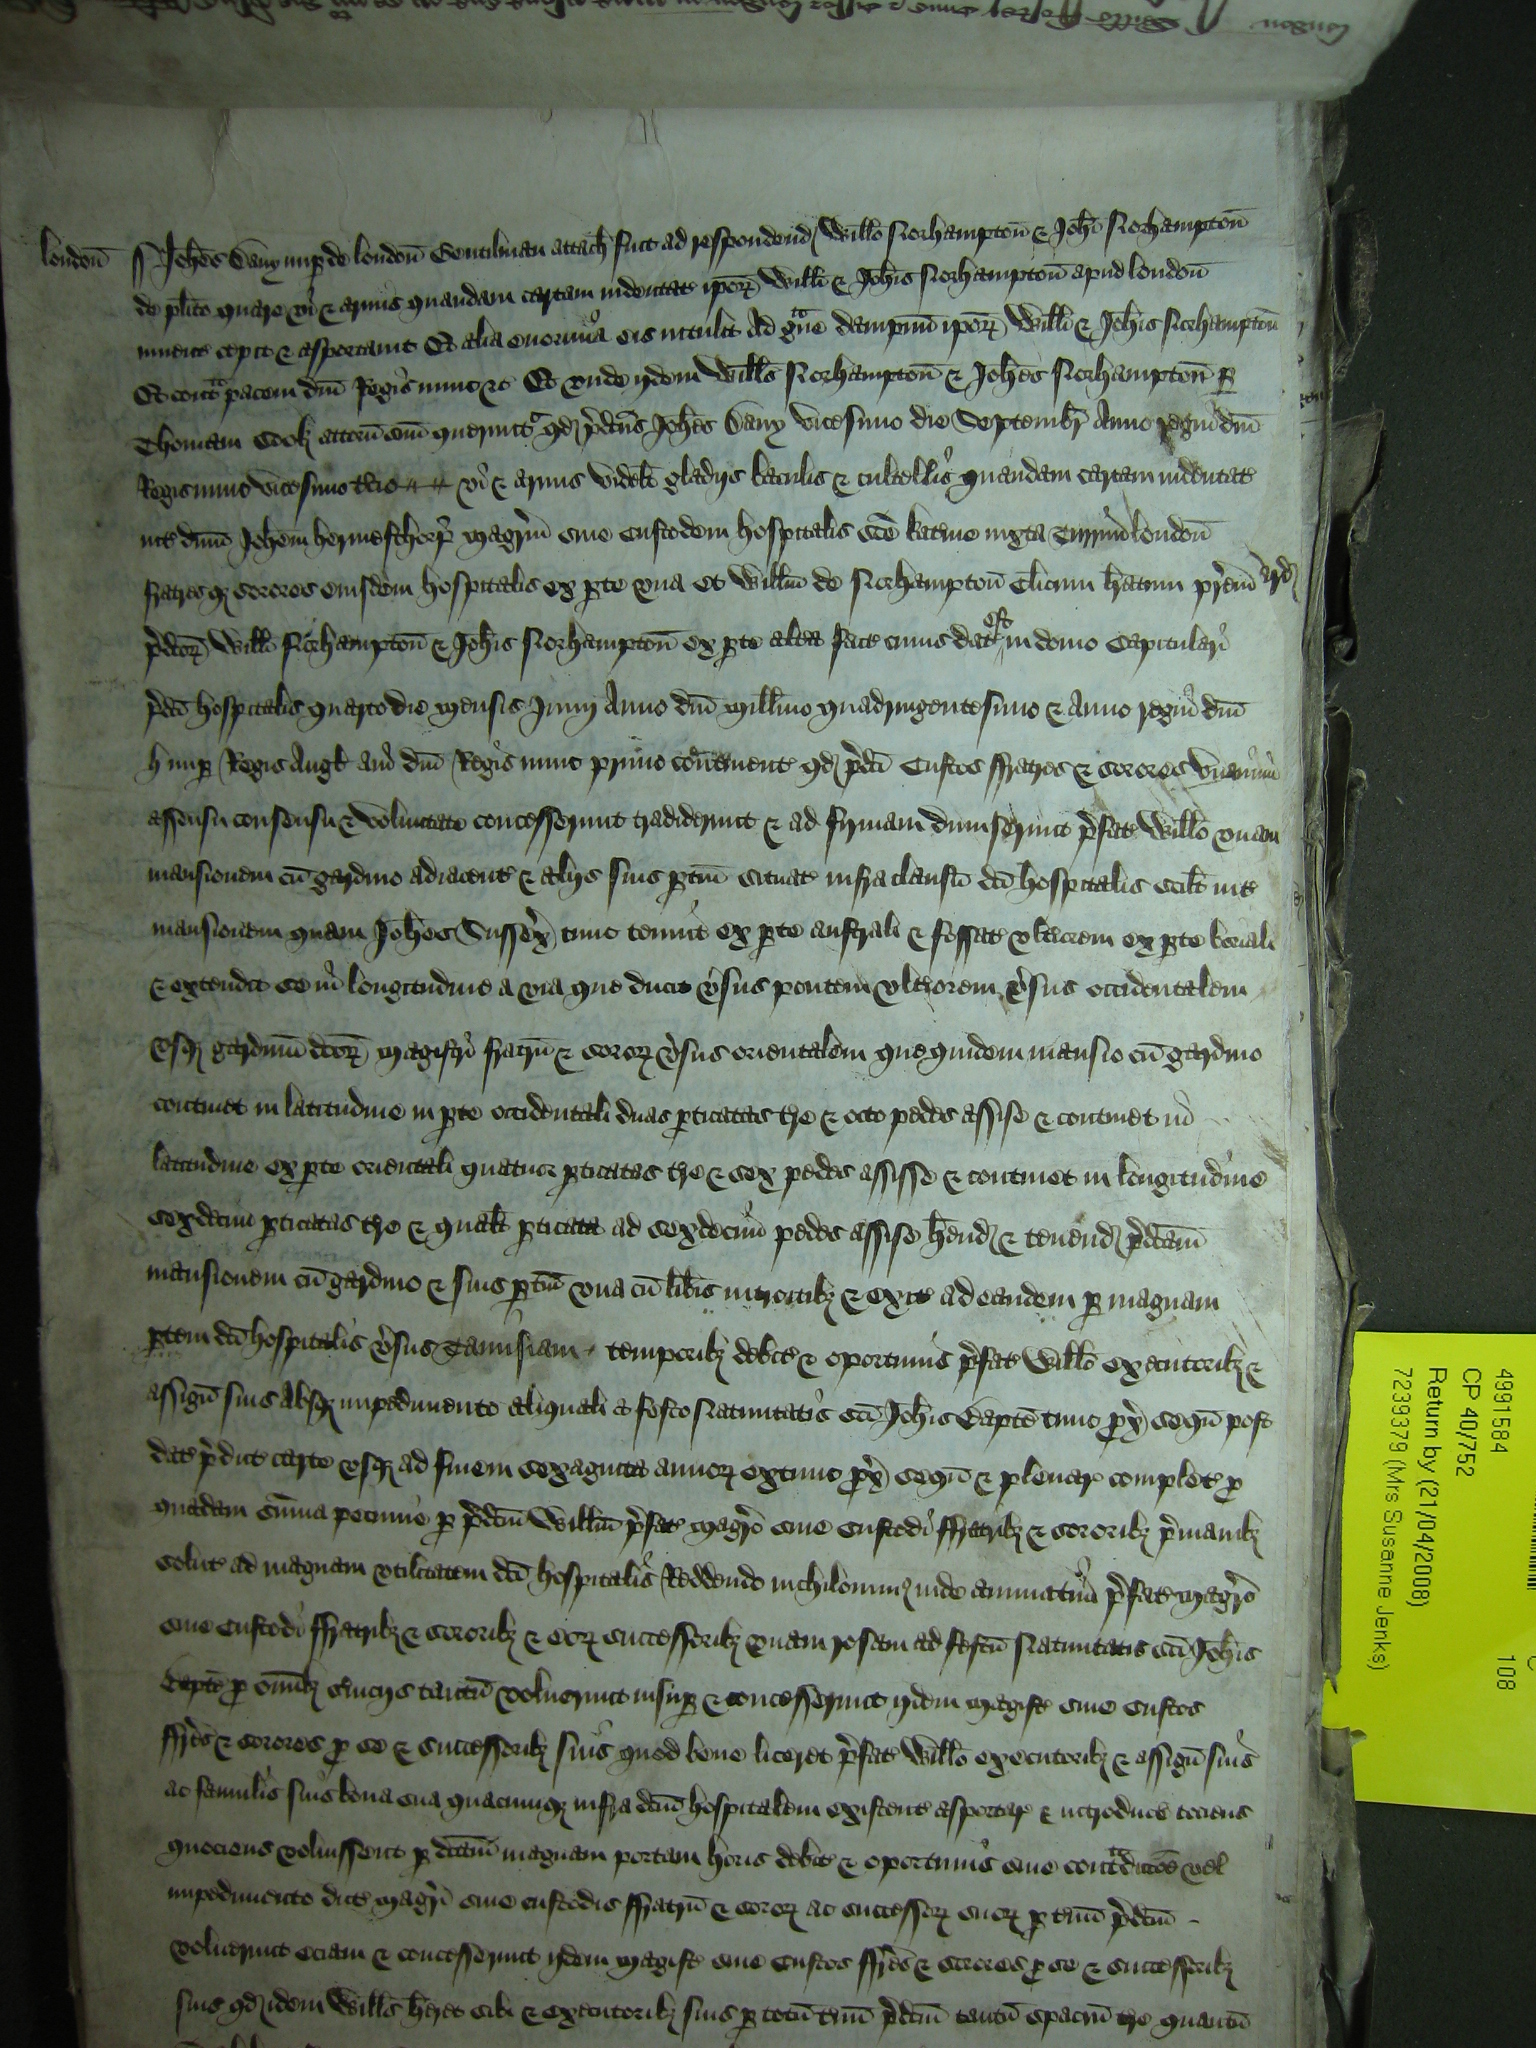 london
Joh̄es Dany nup̱ de londoñ Gentilman attach fuit ad respondend Will̄o Norhamptoñ & Joh̄i Norhamptoñ
de pl̄ito quare vi & armis quandam cartam indentat ip̄or Willi & Joh̄is Norhamptoñ apud londoñ
inuent cepit & asportauit Et alia enormia eis intulit Ad gue dampnū ip̄or Willi & Joh̄is Norhamptoñ
Et cont pacem dn̄i Regis nunc &c Et unde ijdem Will̄s Norhamptoñ & Joh̄es Norhamptoñ p̱
Thomam Cook attorn suū querunt qd p̄dcus Joh̄es Dany vicesimo die Septembr Anno regni dn̄i
Regis nunc vicesimo vi & armis videlt gladijs baculis & cultellis quandam cartam indentat
int dn̄m Joh̄em hermesthorp magrm siue Custodem hospitalis sc̄e Katine iuxta Turrim londoñ
fratres & sorores eiusdem hospitalis ex p̱te una et Will̄m de Norhamptoñ Clicum
p̄dcor Willi Norhamptoñ & Joh̄is Norhamptoñ ex p̱te altea fact cuius dat est in domo Capitulari
p̄dci hospitalis quarto die mensis Junij Anno dn̄i mill̄mo quadringentesimo & Anno regni dn̄i
h nup̱ Regis Angl aui dn̄i Regis nunc primo continent qd p̄dci Custos ffratres & sorores unanimi
assensu consensu & voluntate concesserunt tradiderunt & ad firmam dimiserunt p̄fat Will̄o unam
mansionem cū gardino adiacent & alijs suis p̱tin situat infra clausū dc̄i hospitalis scilt int
mansionem quam Joh̄es Sussex tunc tenuit ex p̱te australi & fossat ulteriorem ex p̱te boriali
& extendit se in longitudine a via que ducit v̄sus pontem ulteriorem v̄sus occidentalem
usq gardinū dc̄or magistri fratrū & soror v̄sus orientalem que quidem mansio cū gardino
continet in latitudine in p̱te occidentali duas p̱ticatas tre & octo pedes assise & continet in
latitudine ex p̱te orientali quatuor p̱ticatas tre & sex pedes assisse & continet in longitudine
sexdecim p̱ticatas tre & qualt p̱ticata ad sexdecim pedes assise h̄end & tenend p̄dcam
mansionem cū gardino & suis p̱tin una cū lib̄is introitib & exit ad eandem p̱ magnam
p̱tem dc̄i hospitalis v̄sus Tamisiam temporib debit & oportunis p̄fat Will̄o executorib &
assign suis absq impedimento aliquali a festo Natiuitatis sc̄i Joh̄is Bapt̄e tunc p̱x sequ post
dat p̄dict carte usq ad finem sexaginta annor extunc p̱x sequ & plenar complet p̱
quadam sum̄a pecunie p̱ p̄dcm Will̄m p̄fat magro siue custodi ffratrib & sororib p̄ manib
solut ad magnam utilitatem dc̄i hospitalis Reddendo nichilomin inde annuatim p̄fat magro
siue custodi ffratrib & sororib & eor successorib unam rosam ad festū Natiuitatis sc̄i Joh̄is
Bapt̄e p̱ om̄ib seruicijs tantū voluerunt insup̱ & concesserunt ijdem magist siue Custos
ffrēs & sorores p̱ se & successorib suis quod bene liceret p̄fat Will̄o executorib & assign suis
ac famulis suis bona sua quacumq infra dcm hospitalem existent asportar & introducer tociens
quociens voluissent p̱ dcam magnam portam horis debit & oportunis sine contdiccōe vel
impedimento dict magri siue custodis ffratrū & soror ac successor suor p̱ tmū p̄dcm
voluerunt eciam & concesserunt ijdem magist siue Custos ffrēs & sorores p̱ se & successorib
suis qd idem Will̄s h̄eret sibi & executorib suis p̱ totū tmū p̄dcm tantū spaciū tre quantū
4991584
CP 40/752
Return by (21/04/2008)
7239379 (Mrs Susanne Jenks)
108